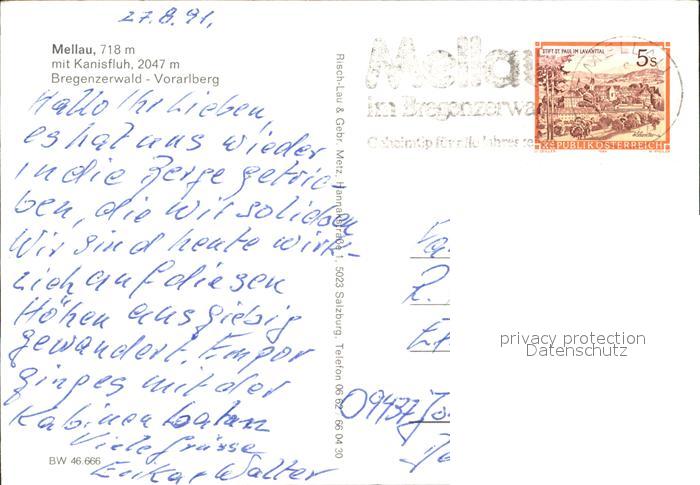 27.8.91,
Mellau, 718 m
mit Kanisfluh, 2047 m
Bregenzerwald - Vorarlberg
Hallo Ihr Lieben,
es hat uns wieder
in die Berge getrie-
ben, die wir so lieben
Wir sind heute wirk-
lich auf diesen
Höhen ausgiebig
gewandert. Empor
ging es mit der
Kabinenbahn
Viele Grüsse
Erika + Walter
BW 46.666
Risch-Lau & Gebr. Metz, Hannakstraße 1, 5023 Salzburg, Telefon 06 62 66 04 30
Mellau
im Bregenzerwa
Geheimtip für alle Jahresze
STIFT ST. PAUL IM LAVANTTAL
5s
REPUBLIK ÖSTERREICH
Fa
R.
09437 Jo
privacy protection
Datenschutz